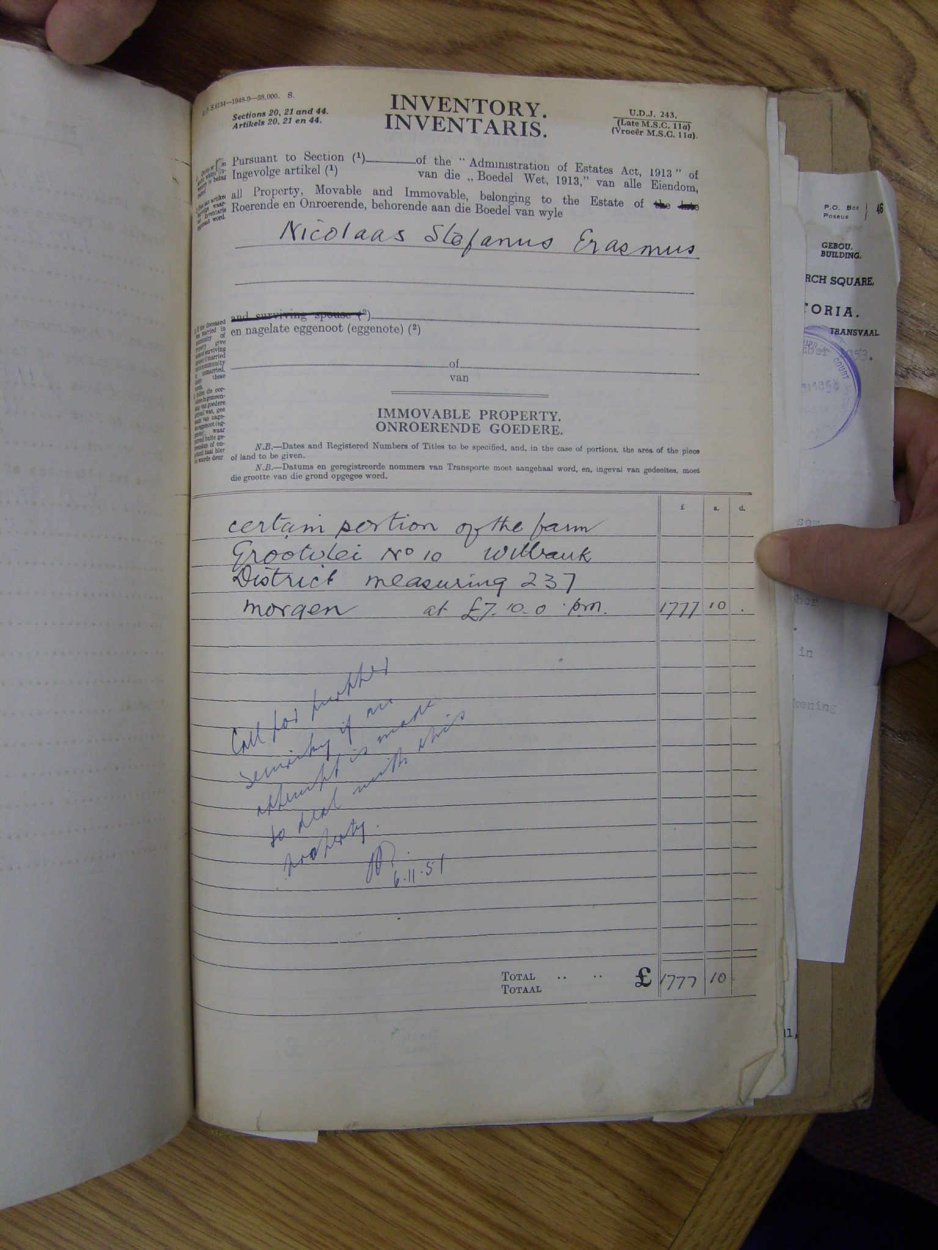 S.6134—1948-9—38,000. S.
Sections 20, 21 and 44.
Artikels 20, 21 en 44.
INVENTORY.
INVENTARIS.
U.D.J. 243.
(Late M.S.C. 11a)
(Vroeër M.S.C. 11a).
Pursuant to Section (¹)______of the " Administration of Estates Act, 1913 " of
Ingevolge artikel (¹) van die „ Boedel Wet, 1913," van alle Eiendom,
all Property, Movable and Immovable, belonging to the Estate of the late
Roerende en Onroerende, behorende aan die Boedel van wyle
Nicolaas Stefanus Erasmus
and surviving spouse (²)
en nagelate eggenoot (eggenote) (²)
of
van
IMMOVABLE PROPERTY.
ONROERENDE GOEDERE.
N.B.—Dates and Registered Numbers of Titles to be specified, and, in the case of portions, the area of the piece
of land to be given.
N.B.—Datums en geregistreerde nommers van Transporte moet aangehaal word, en, ingeval van gedeeltes, moet
die grootte van die grond opgegee word.
£ s. d.
certain portion of the farm
Grootvlei No 10 Witbank
District measuring 237
morgen at £7.10.0 pm. 1777 10 .
Call for further
security if an
attempt is made
to deal with this
property.
6.11.51
TOTAL .. .. £ 1777 10
TOTAAL
P.O. Box
Posbus
46
GEBOU.
BUILDING.
RCH SQUARE,
TORIA.
TRANSVAAL.
COURT
in